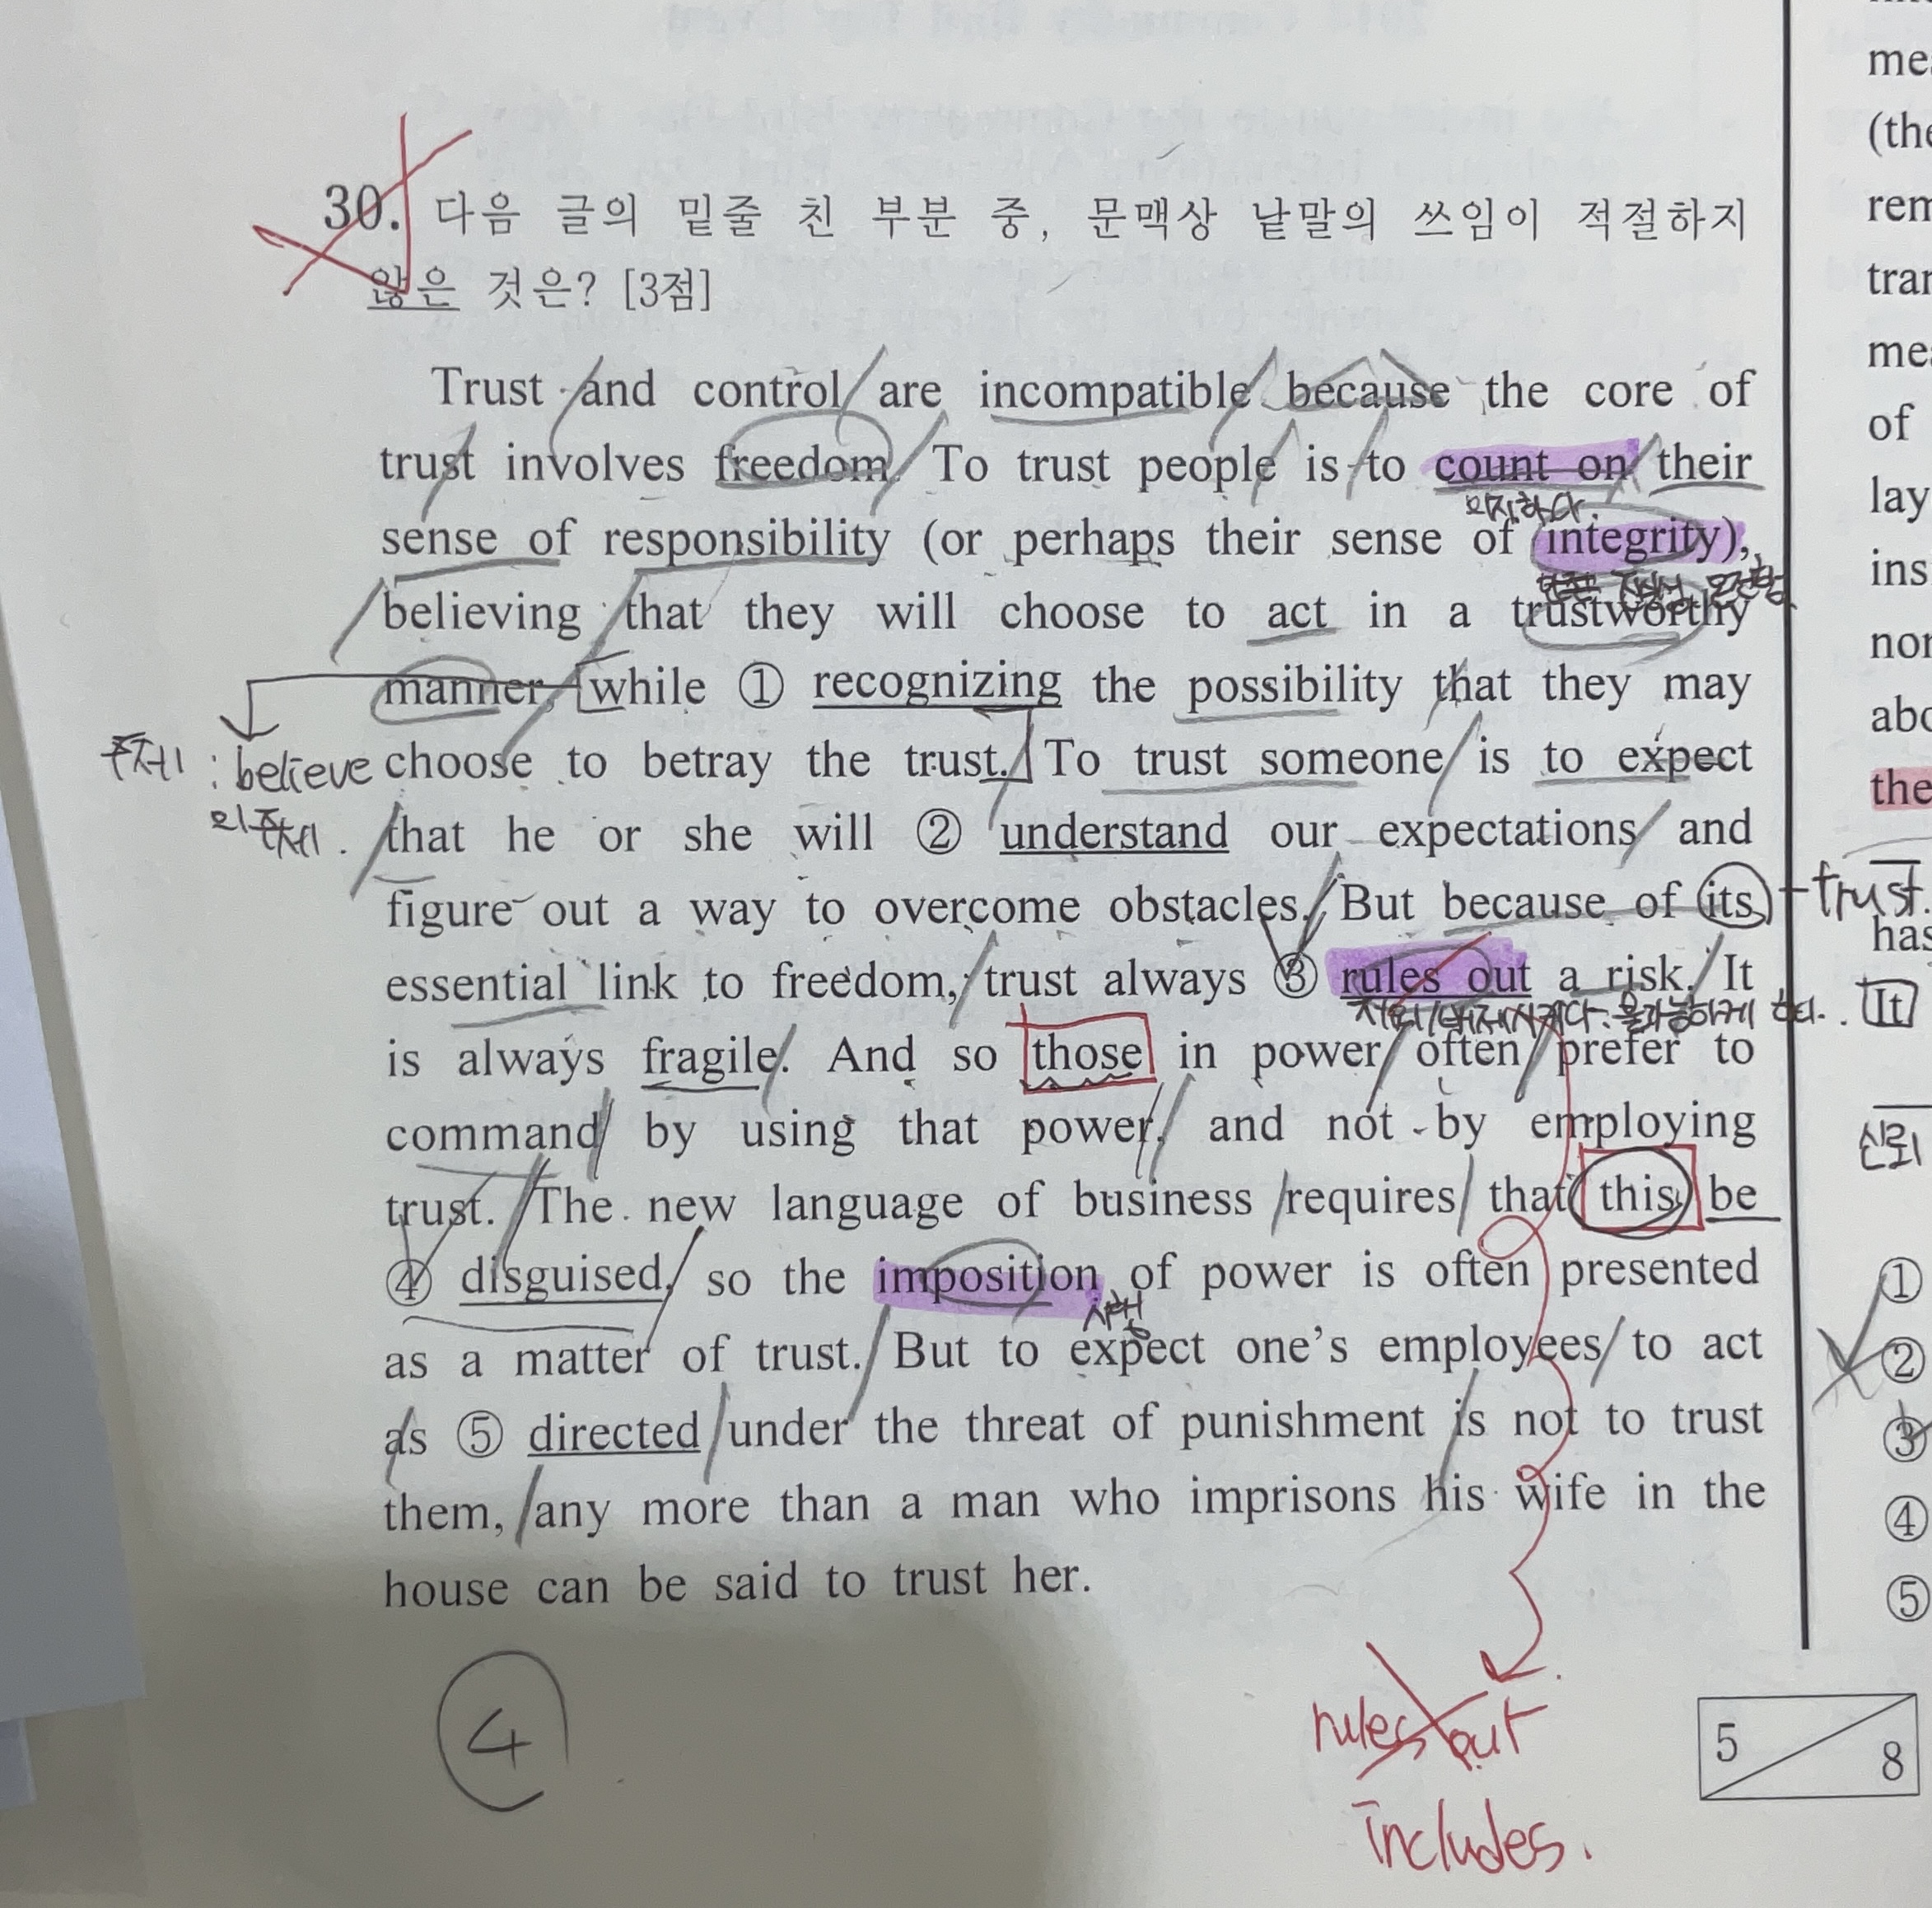 30. 다음 글의 밑줄 친 부분 중, 문맥상 낱말의 쓰임이 적절하지
않은 것은? [3점]
Trust and control are incompatible because the core of
trust involves freedom. To trust people is to count on their
의지하다.
sense of responsibility (or perhaps their sense of integrity),
believing that they will choose to act in a trustworthy
manner, while ① recognizing the possibility that they may
주제 : believe
choose to betray the trust. To trust someone is to expect
의 주체.
that he or she will ② understand our expectations and
figure out a way to overcome obstacles. But because of its
trust.
essential link to freedom, trust always ③ rules out a risk. It
is always fragile. And so those in power often prefer to
command by using that power, and not by employing
trust. The new language of business requires that this be
④ disguised, so the imposition of power is often presented
as a matter of trust. But to expect one's employees to act
as ⑤ directed under the threat of punishment is not to trust
them, any more than a man who imprisons his wife in the
house can be said to trust her.
4
rules out
includes.
5 8
me
(the
rem
tran
of
lay
ins
nor
abo
the
has
It
신뢰
①
②
③
④
⑤